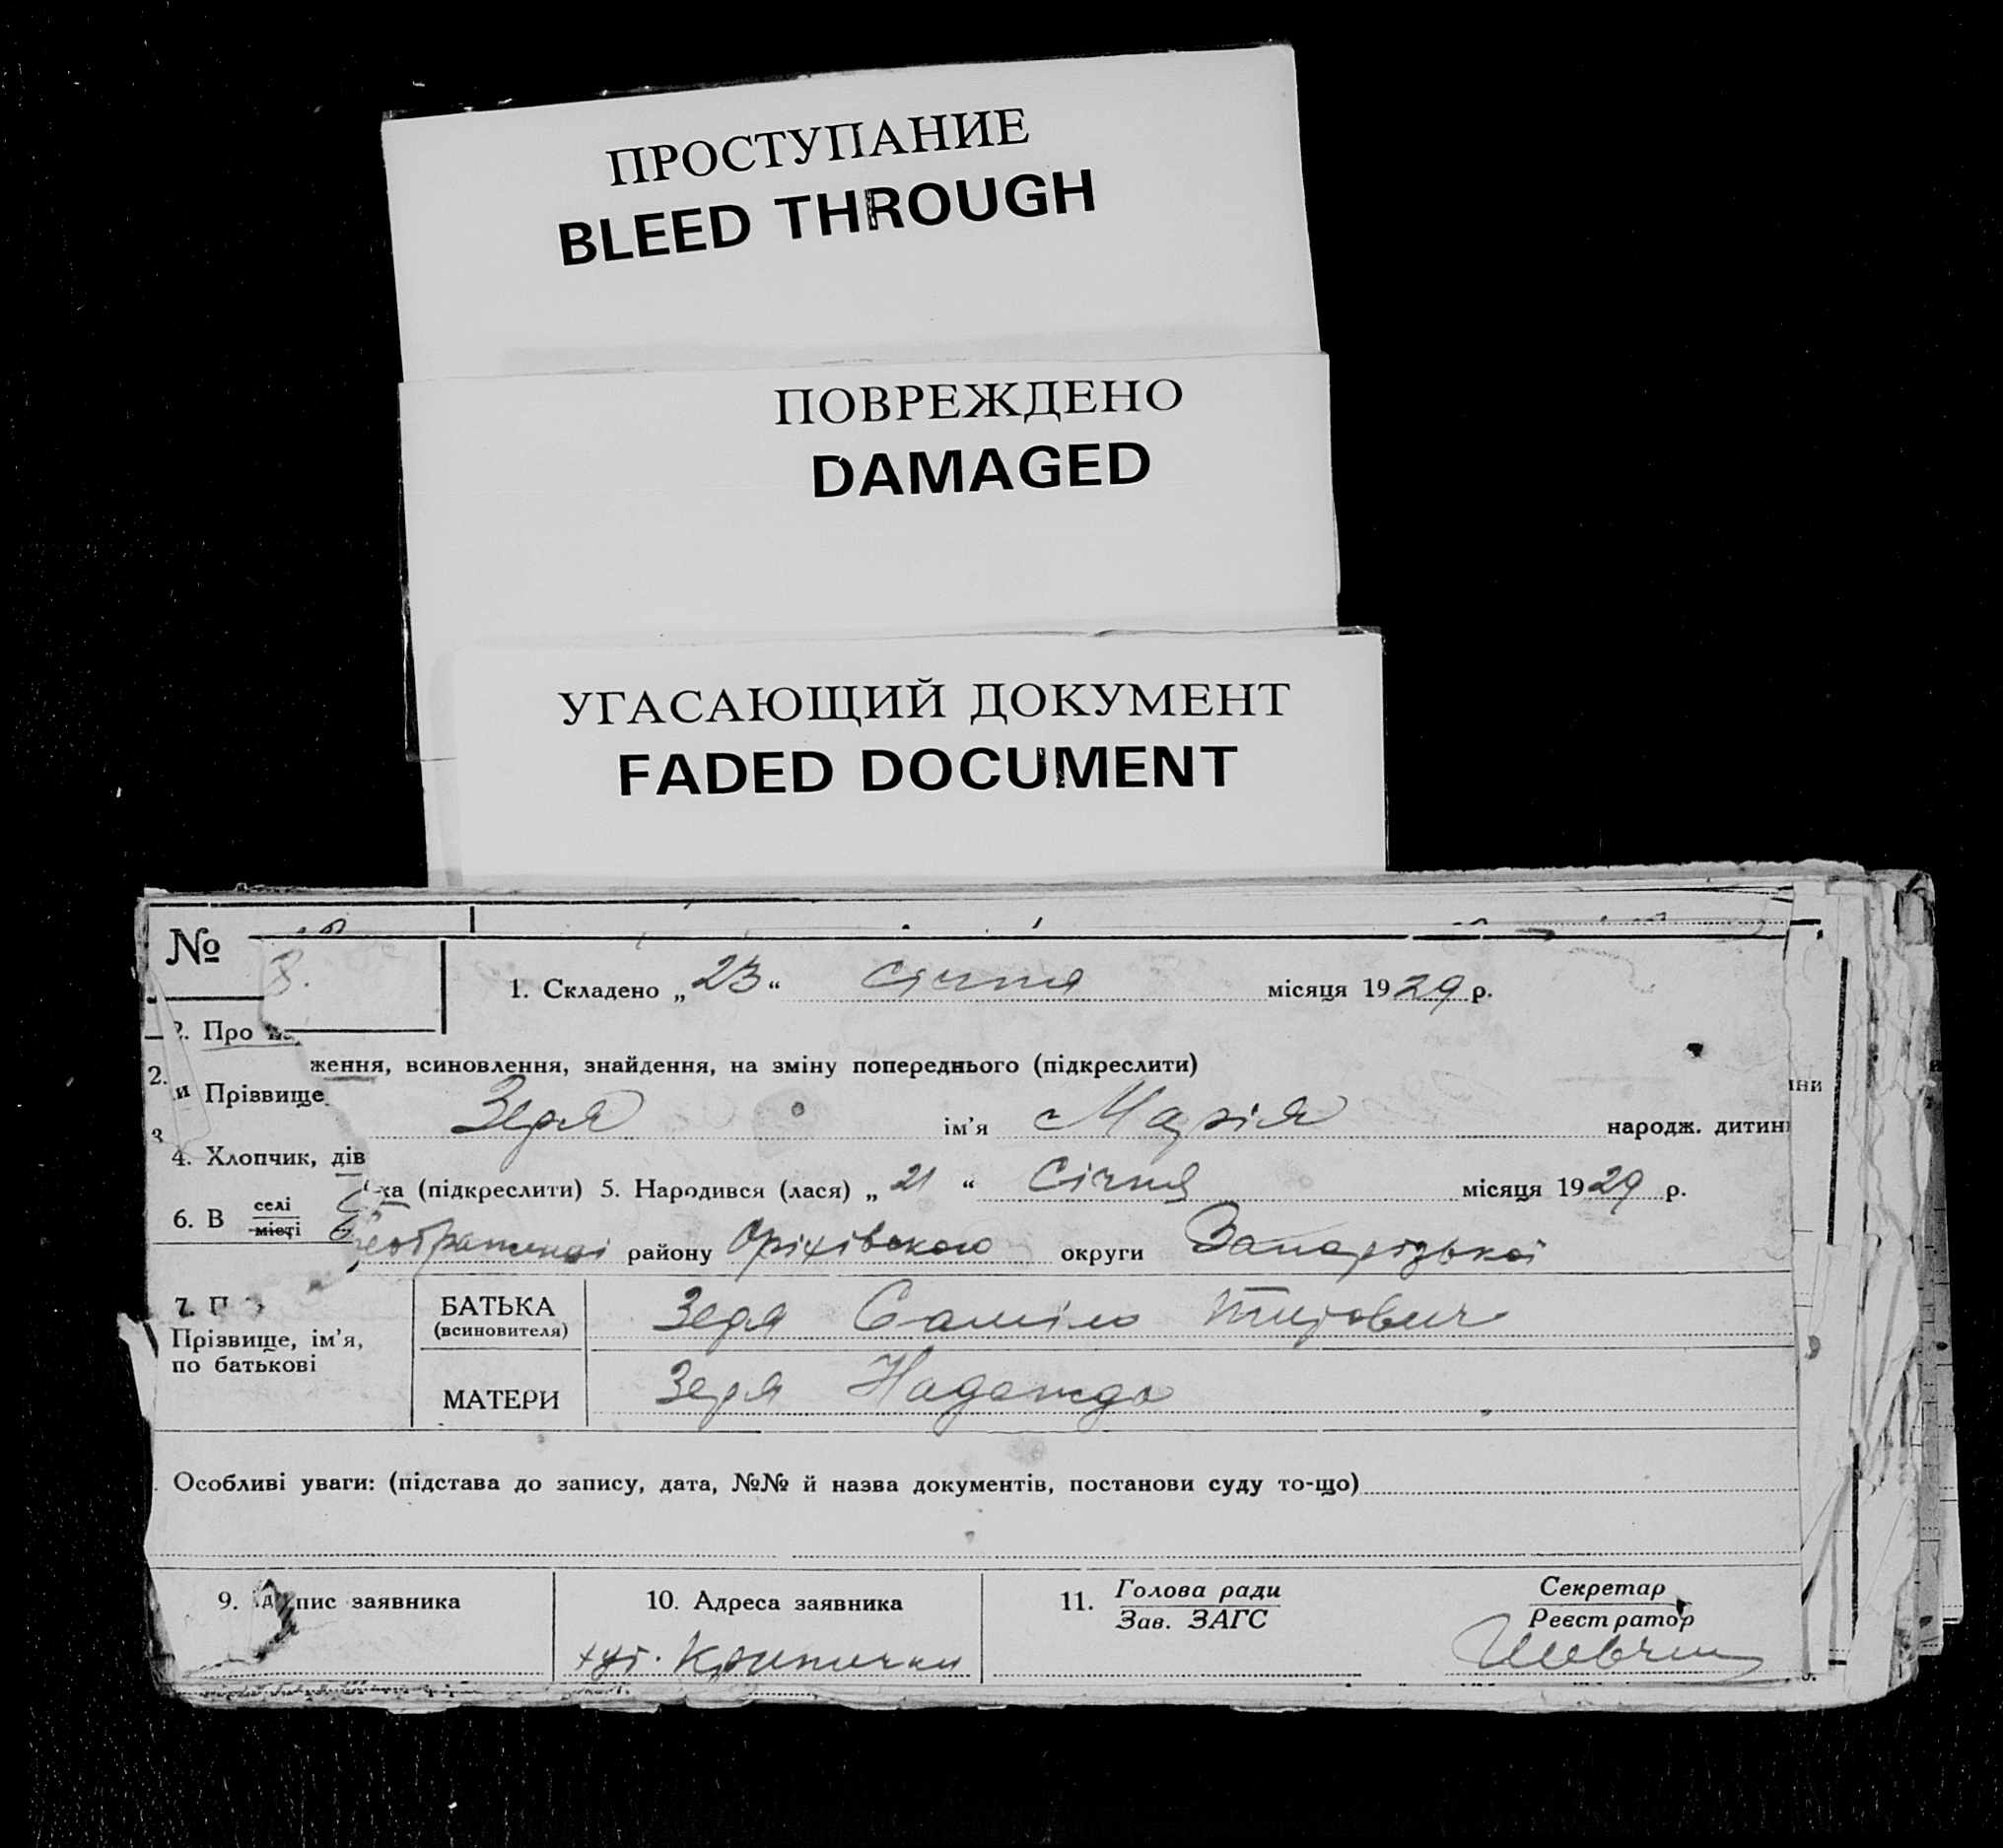 ПРОСТУПАНИЕ
BLEED THROUGH
ПОВРЕЖДЕНО
DAMAGED
УГАСАЮЩИЙ ДОКУМЕНТ
FADED DOCUMENT
№ 3.
1. Складено „23“ Січня місяця 1929 р.
2. Про
2. ження, всиновлення, знайдення, на зміну попереднього (підкреслити)
и Прізвище Зеря ім'я Марія народж. дитин
3
4. Хлопчик, дів ка (підкреслити) 5. Народився (лася) „21“ Січня місяця 1929 р.
6. В селі
місті району Оріхівського округи Запорізької
7. П
Прізвище, ім'я,
по батькові
БАТЬКА
(всиновителя)
Зеря Саміло Титович
МАТЕРИ Зеря Надежда
Особливі уваги: (підстава до запису, дата, №№ й назва документів, постанови суду то-що)
9. пис заявника 10. Адреса заявника 11. Голова ради Секретар
Зав. ЗАГС Реєстратор
хут. Кринички